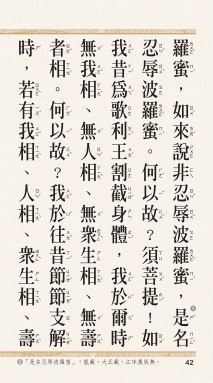 羅蜜，如來說非忍辱波羅蜜，是名
忍辱波羅蜜。何以故？須菩提！如
我昔為歌利王割截身體，我於爾時
無我相、無人相、無衆生相、無壽
者相。何以故？我於往昔節節支解
時，若有我相、人相、衆生相、壽
42